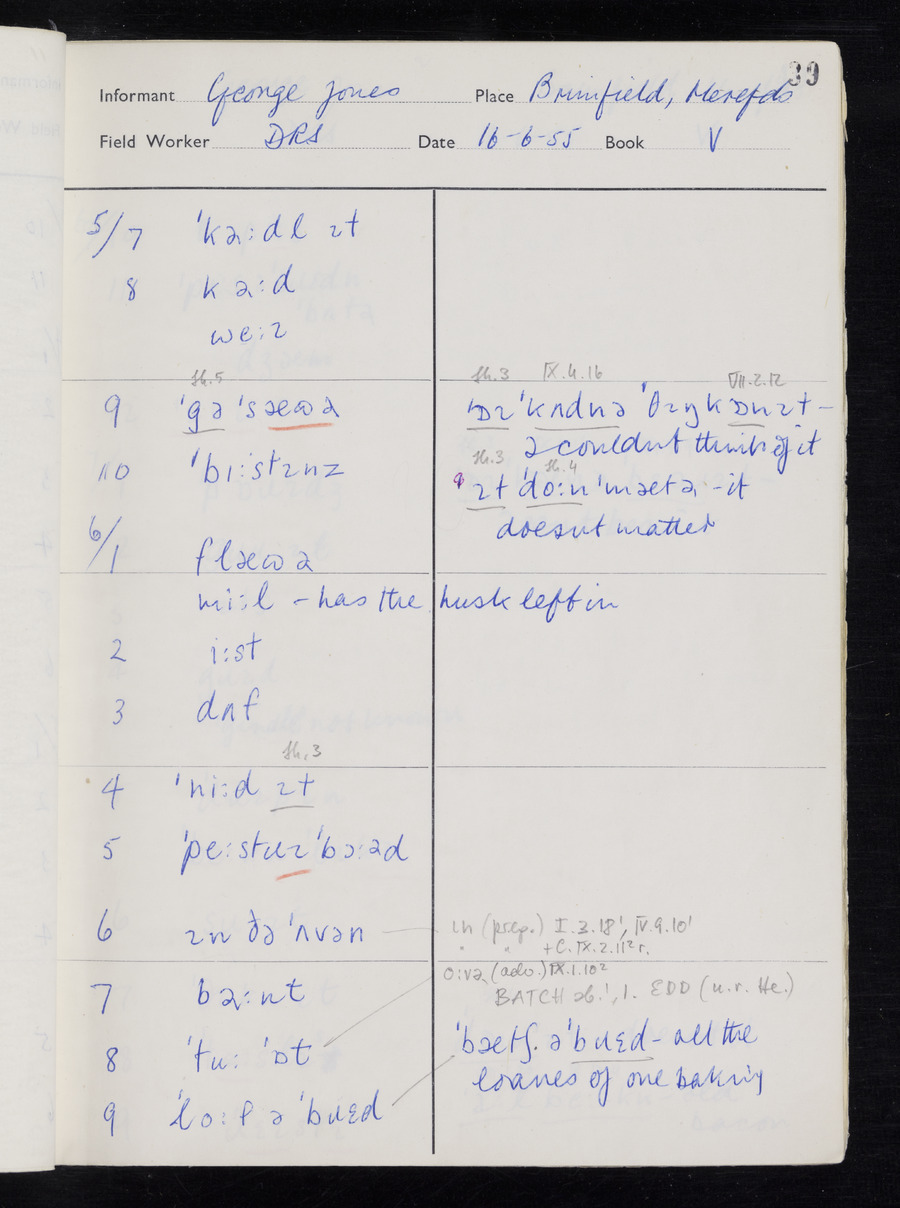 39
Informant George Jones Place Brimfield, Herefds
Field Worker DRS Date 16-6-55 Book V
5/7 ˈkəːdl ɪt
8 kəːd
weːɪ
sh.5
9 ˈgə ˈsæωə
10 ˈbɪːstɪnz
6/1 flæωə
miːl - has the husk left in
2 iːst
3 dʌf
sh.3
4 ˈniːd ɪt
5 ˈpeːstɹɪ ˈbɔːəd
6 ɪn ðə ˈʌvən
7 bəːnt
8 ˈtuː ˈɒt
9 ˈloːf ə ˈbɹɛd
sh.3 IX.4.16 VII.2.12
ˈɒɪ ˈkʌdnə ˈθɪŋk ɒn ɪt -
I couldnt think of it
sh.3 sh.4
ɪt ˈdoːn ˈmætə - it
doesnt matter
in (prep.) I.3.18¹, IV.9.10¹
" " + C.IX.2.11² r.
oːvə (adv.) IX.1.10²
BATCH sb.¹, 1. EDD (n.r. He.)
ˈbætʃ ə ˈbɹɛd - all the
loaves of one baking